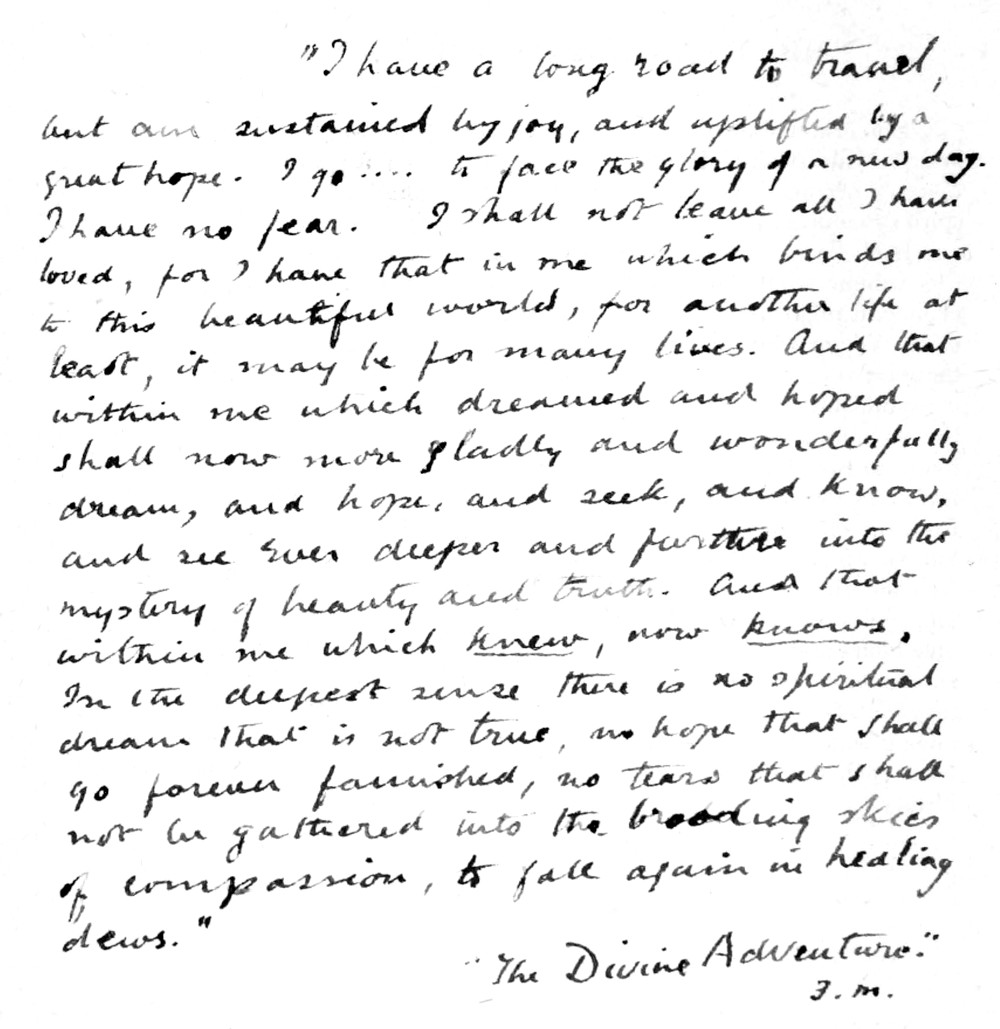 "I have a long road to travel,
but am sustained by joy, and uplifted by a
great hope. I go .... to face the glory of a new day.
I have no fear. I shall not leave all I have
loved, for I have that in me which binds me
to this beautiful world, for another life at
least, it may be for many lives. And that
within me which dreamed and hoped
shall now more gladly and wonderfully
dream, and hope, and seek, and know,
and see ever deeper and further into the
mystery of beauty and truth. And that
within me which knew, now knows.
In the deepest sense there is no spiritual
dream that is not true, no hope that shall
go forever famished, no tears that shall
not be gathered into the brooding skies
of compassion, to fall again in healing
dews."
"The Divine Adventure."
F. M.